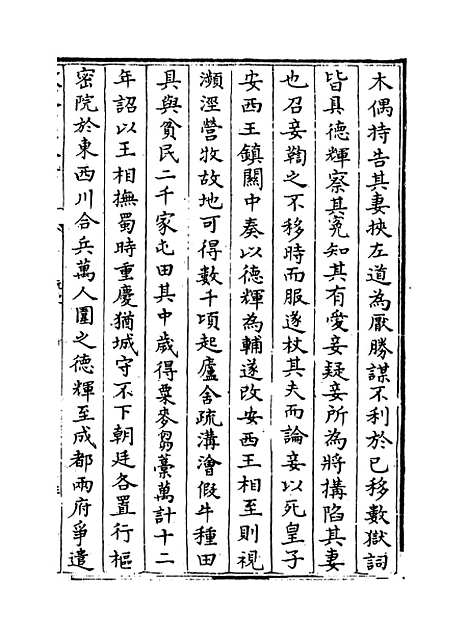 木偶持告其妻挾左道為厭勝謀不利於已移數獄詞
皆具德輝察其冤知其有愛妾疑妾所為將搆陷其妻
也召妾鞫之不移時而服遂杖其夫而論妾以死皇子
安西王鎮關中奏以德輝為輔遂改安西王相至則視
瀕涇營牧故地可得數千頃起廬舍疏溝澮假牛種田
具與貧民二千家屯田其中歲得粟麥芻藁萬計十二
年詔以王相撫蜀時重慶猶城守不下朝廷各置行樞
密院於東西川合兵萬人圍之德輝至成都兩府爭遣